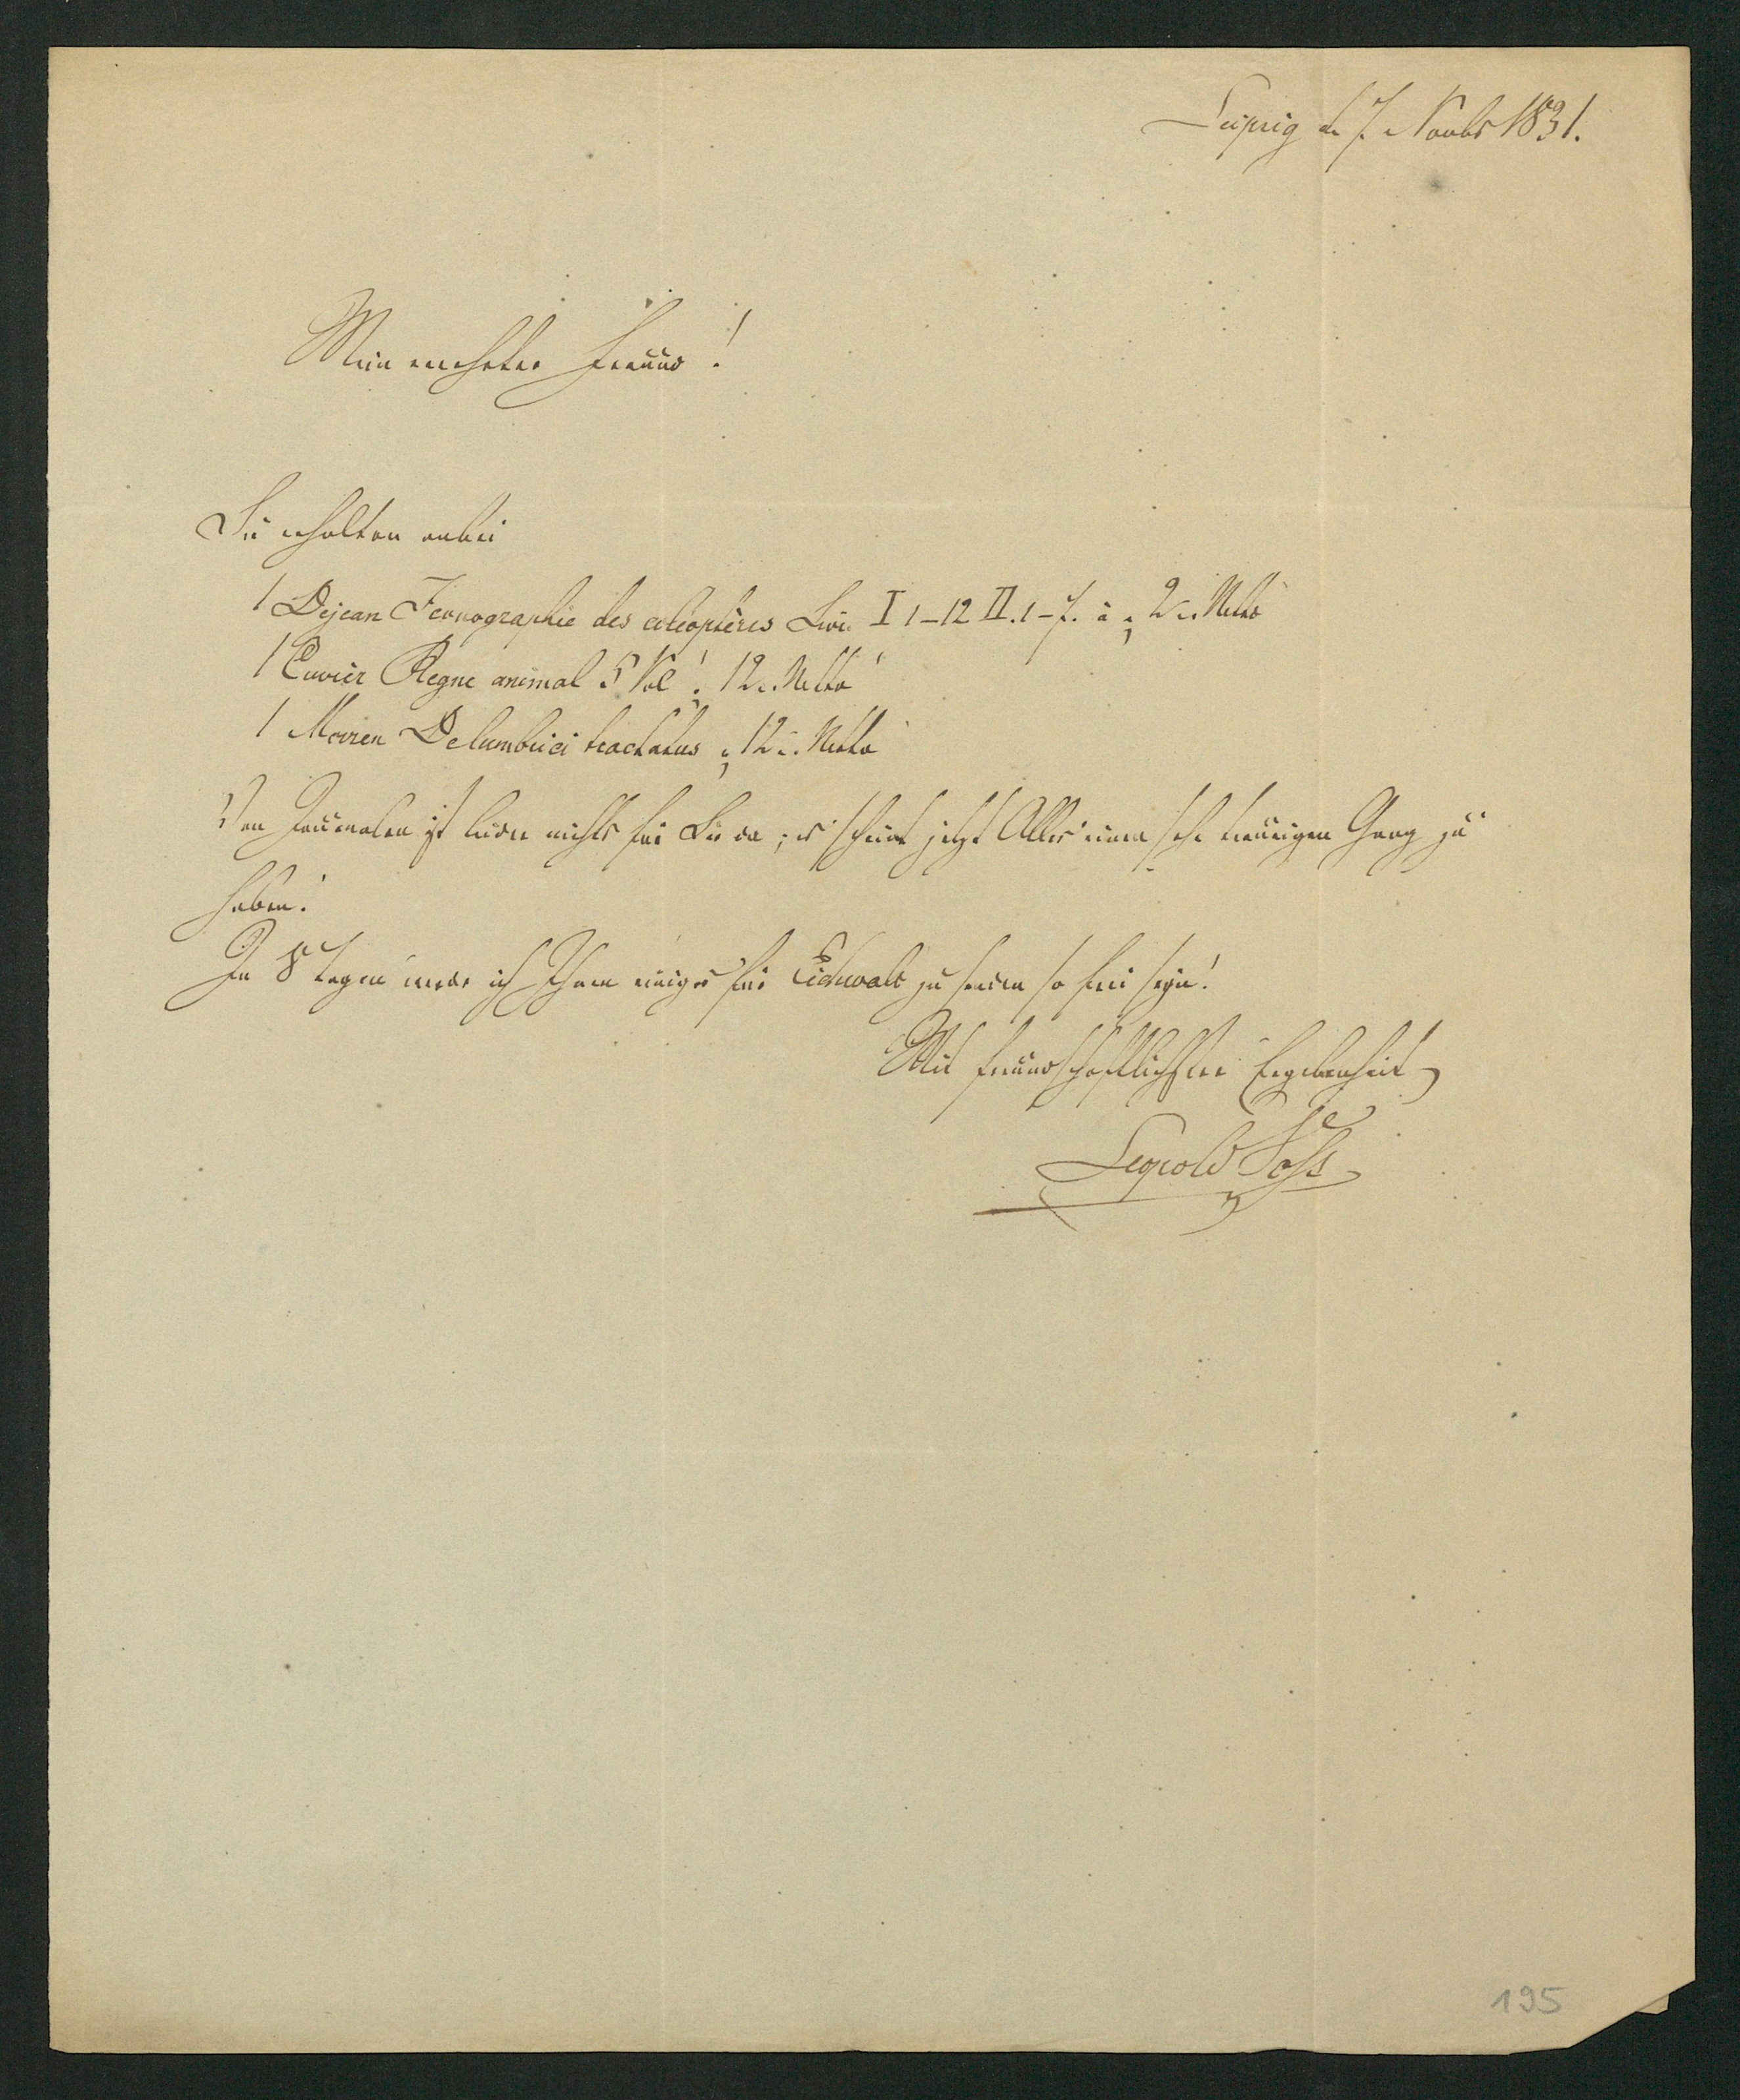 Leipzig d. 7. Novbr 1831.
Mein verehrter Freund!
Sie erhalten anbei
1 Dejean Iconographie des coleoptères Livr. I 1–12 II. 1–7. à 2 Netto
1 Cuvier Regne animal 5 Vol! 12 Netto
1 Morren De lumbrici tractatus 12 Netto
Von Journalen ist leider nichts für Sie da; es scheint jetzt Alles einen sehr traurigen Gang zu
haben!
In 8 Tagen werde ich Ihnen einiges für Eichwald zu senden so frei seyn!
Mit freundschaftlichster Ergebenheit
Leopold Voß
195